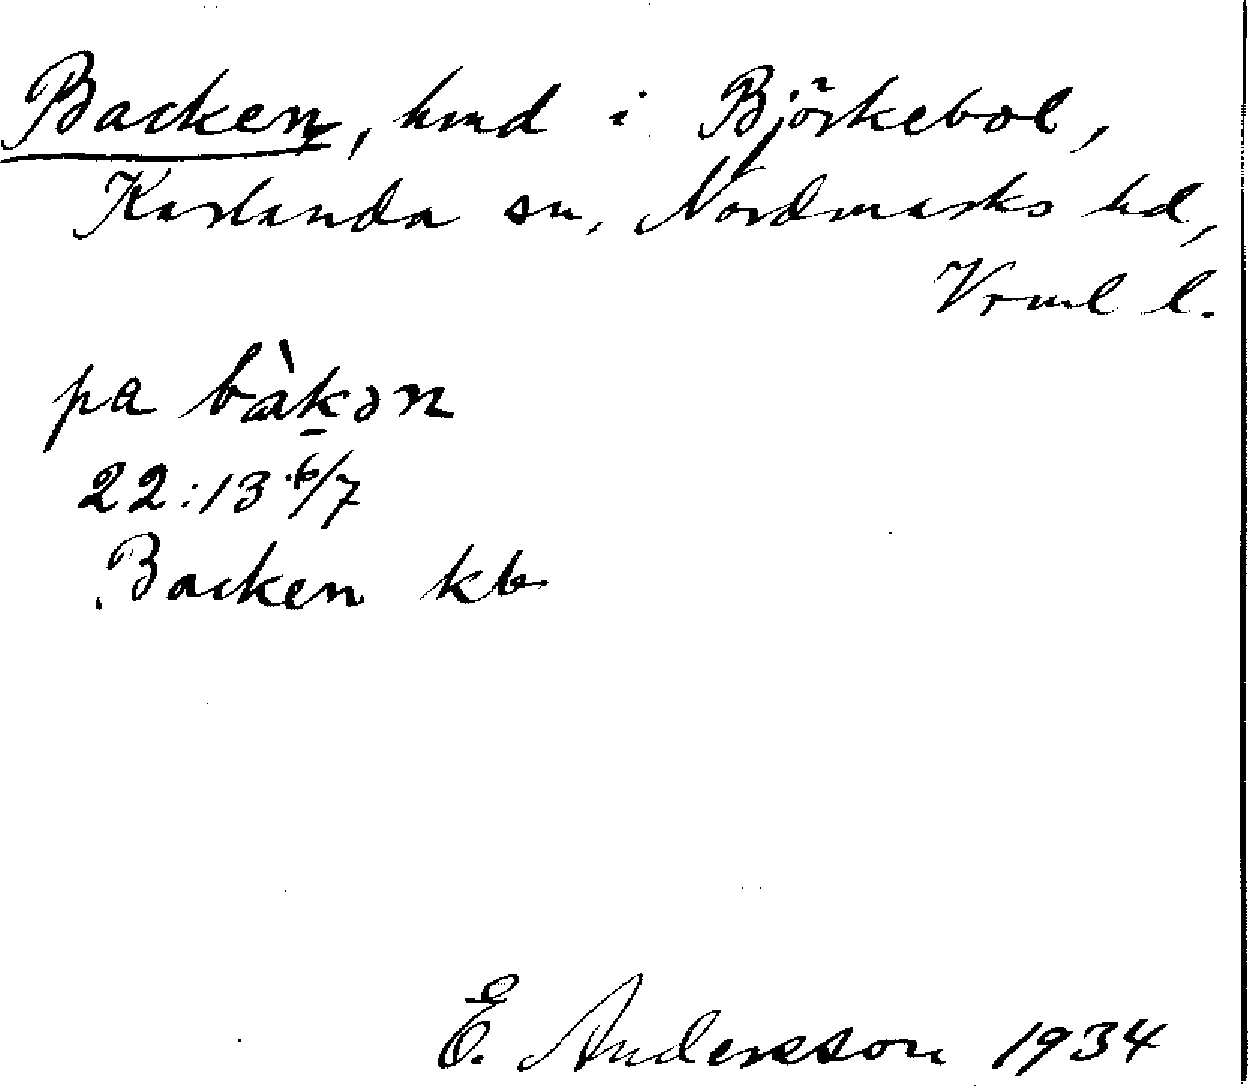 Backen, hmd i Björkebol,
Karlanda sn, Nordmarks hd,
Vrml l.
pa bàk̠ən
22:13 6/7
Backen kb
E. Andersson 1934